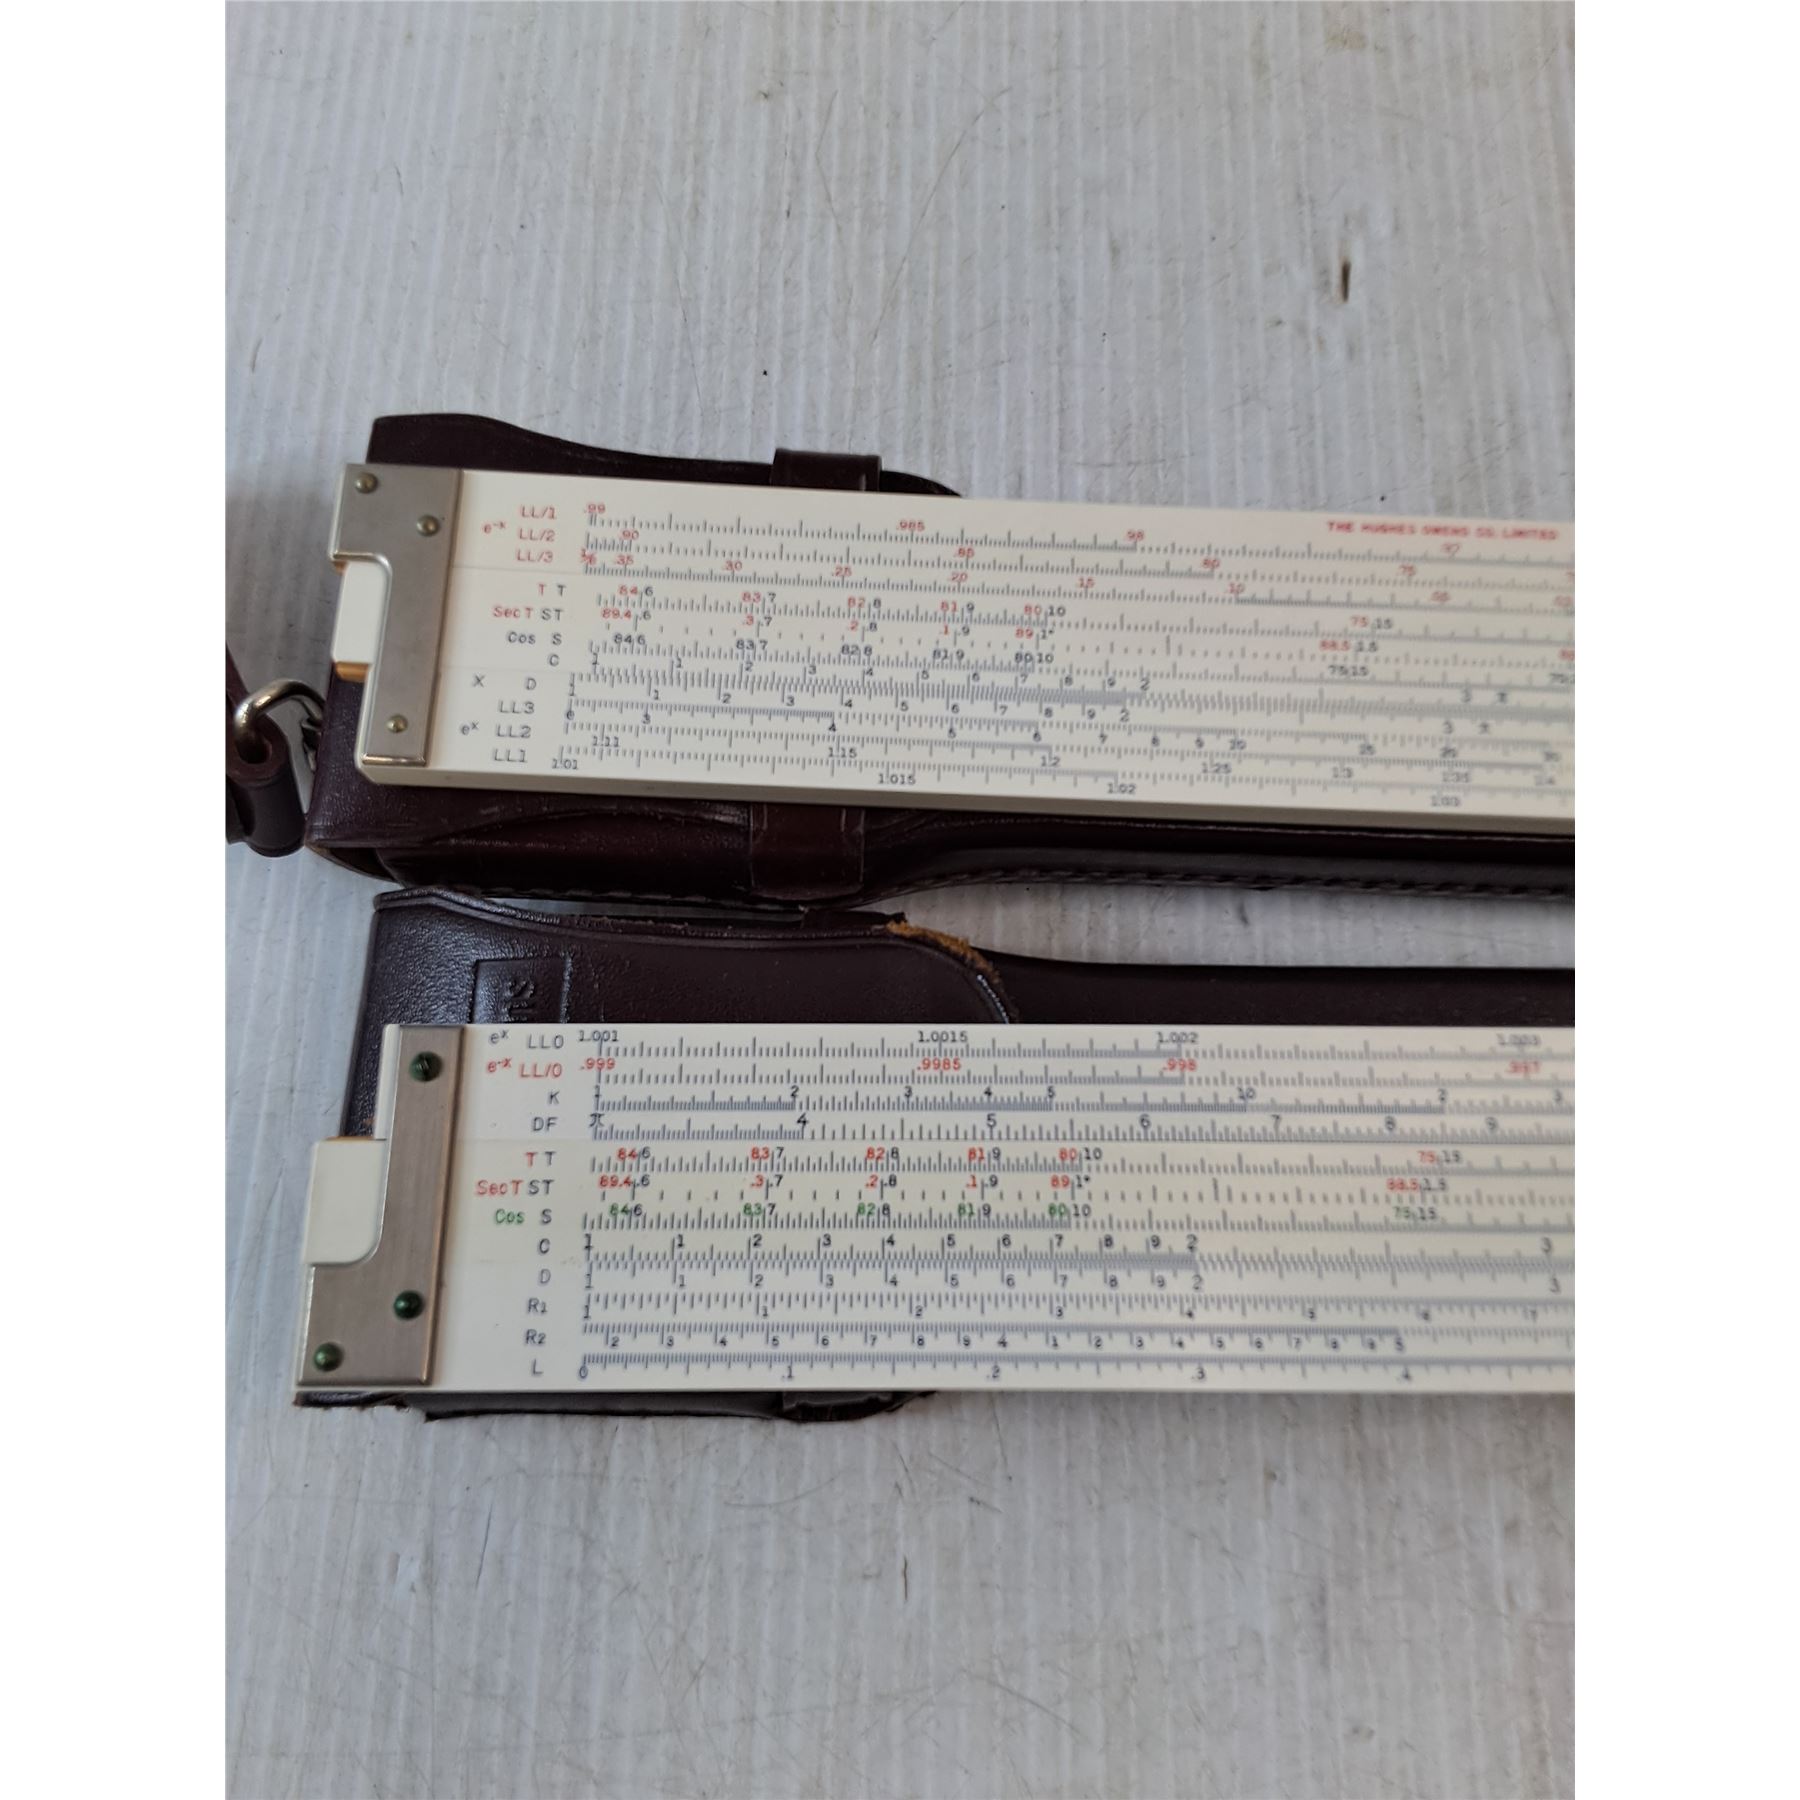 THE HUGHES OWENS CO. LIMITED
LL/1 .99 .985 .98 .97
e⁻ˣ LL/2 .90 .85 .80 .75
LL/3 .35 .30 .25 .20 .15 .10 .05
T T 84 6 83 7 82 8 81 9 80 10 75 15
Sec T ST 89.4 .6 .3 .7 .2 .8 .1 .9 89 1° 88.5 1.5
Cos S 84 6 83 7 82 8 81 9 80 10 75 15
C 1 1 2 3 4 5 6 7 8 9 2 3 π
X D 1 1 2 3 4 5 6 7 8 9 2 3 π
LL3 e 3 4 5 6 7 8 9 10 25 30
eˣ LL2 1.11 1.15 1.2 1.25 1.3 1.35 1.4
LL1 1.01 1.015 1.02 1.03
eˣ LL0 1.001 1.0015 1.002 1.003
e⁻ˣ LL/0 .999 .9985 .998 .997
K 1 2 3 4 5 10 2 3
DF π 4 5 6 7 8 9
T T 84 6 83 7 82 8 81 9 80 10 75 15
Sec T ST 89.4 .6 .3 .7 .2 .8 .1 .9 89 1° 88.5 1.5
Cos S 84 6 83 7 82 8 81 9 80 10 75 15
C 1 1 2 3 4 5 6 7 8 9 2 3
D 1 1 2 3 4 5 6 7 8 9 2 3
R1 1 1 2 3 4 5 6 7
R2 2 3 4 5 6 7 8 9 4 1 2 3 4 5 6 7 8 9 5
L 0 .1 .2 .3 .4